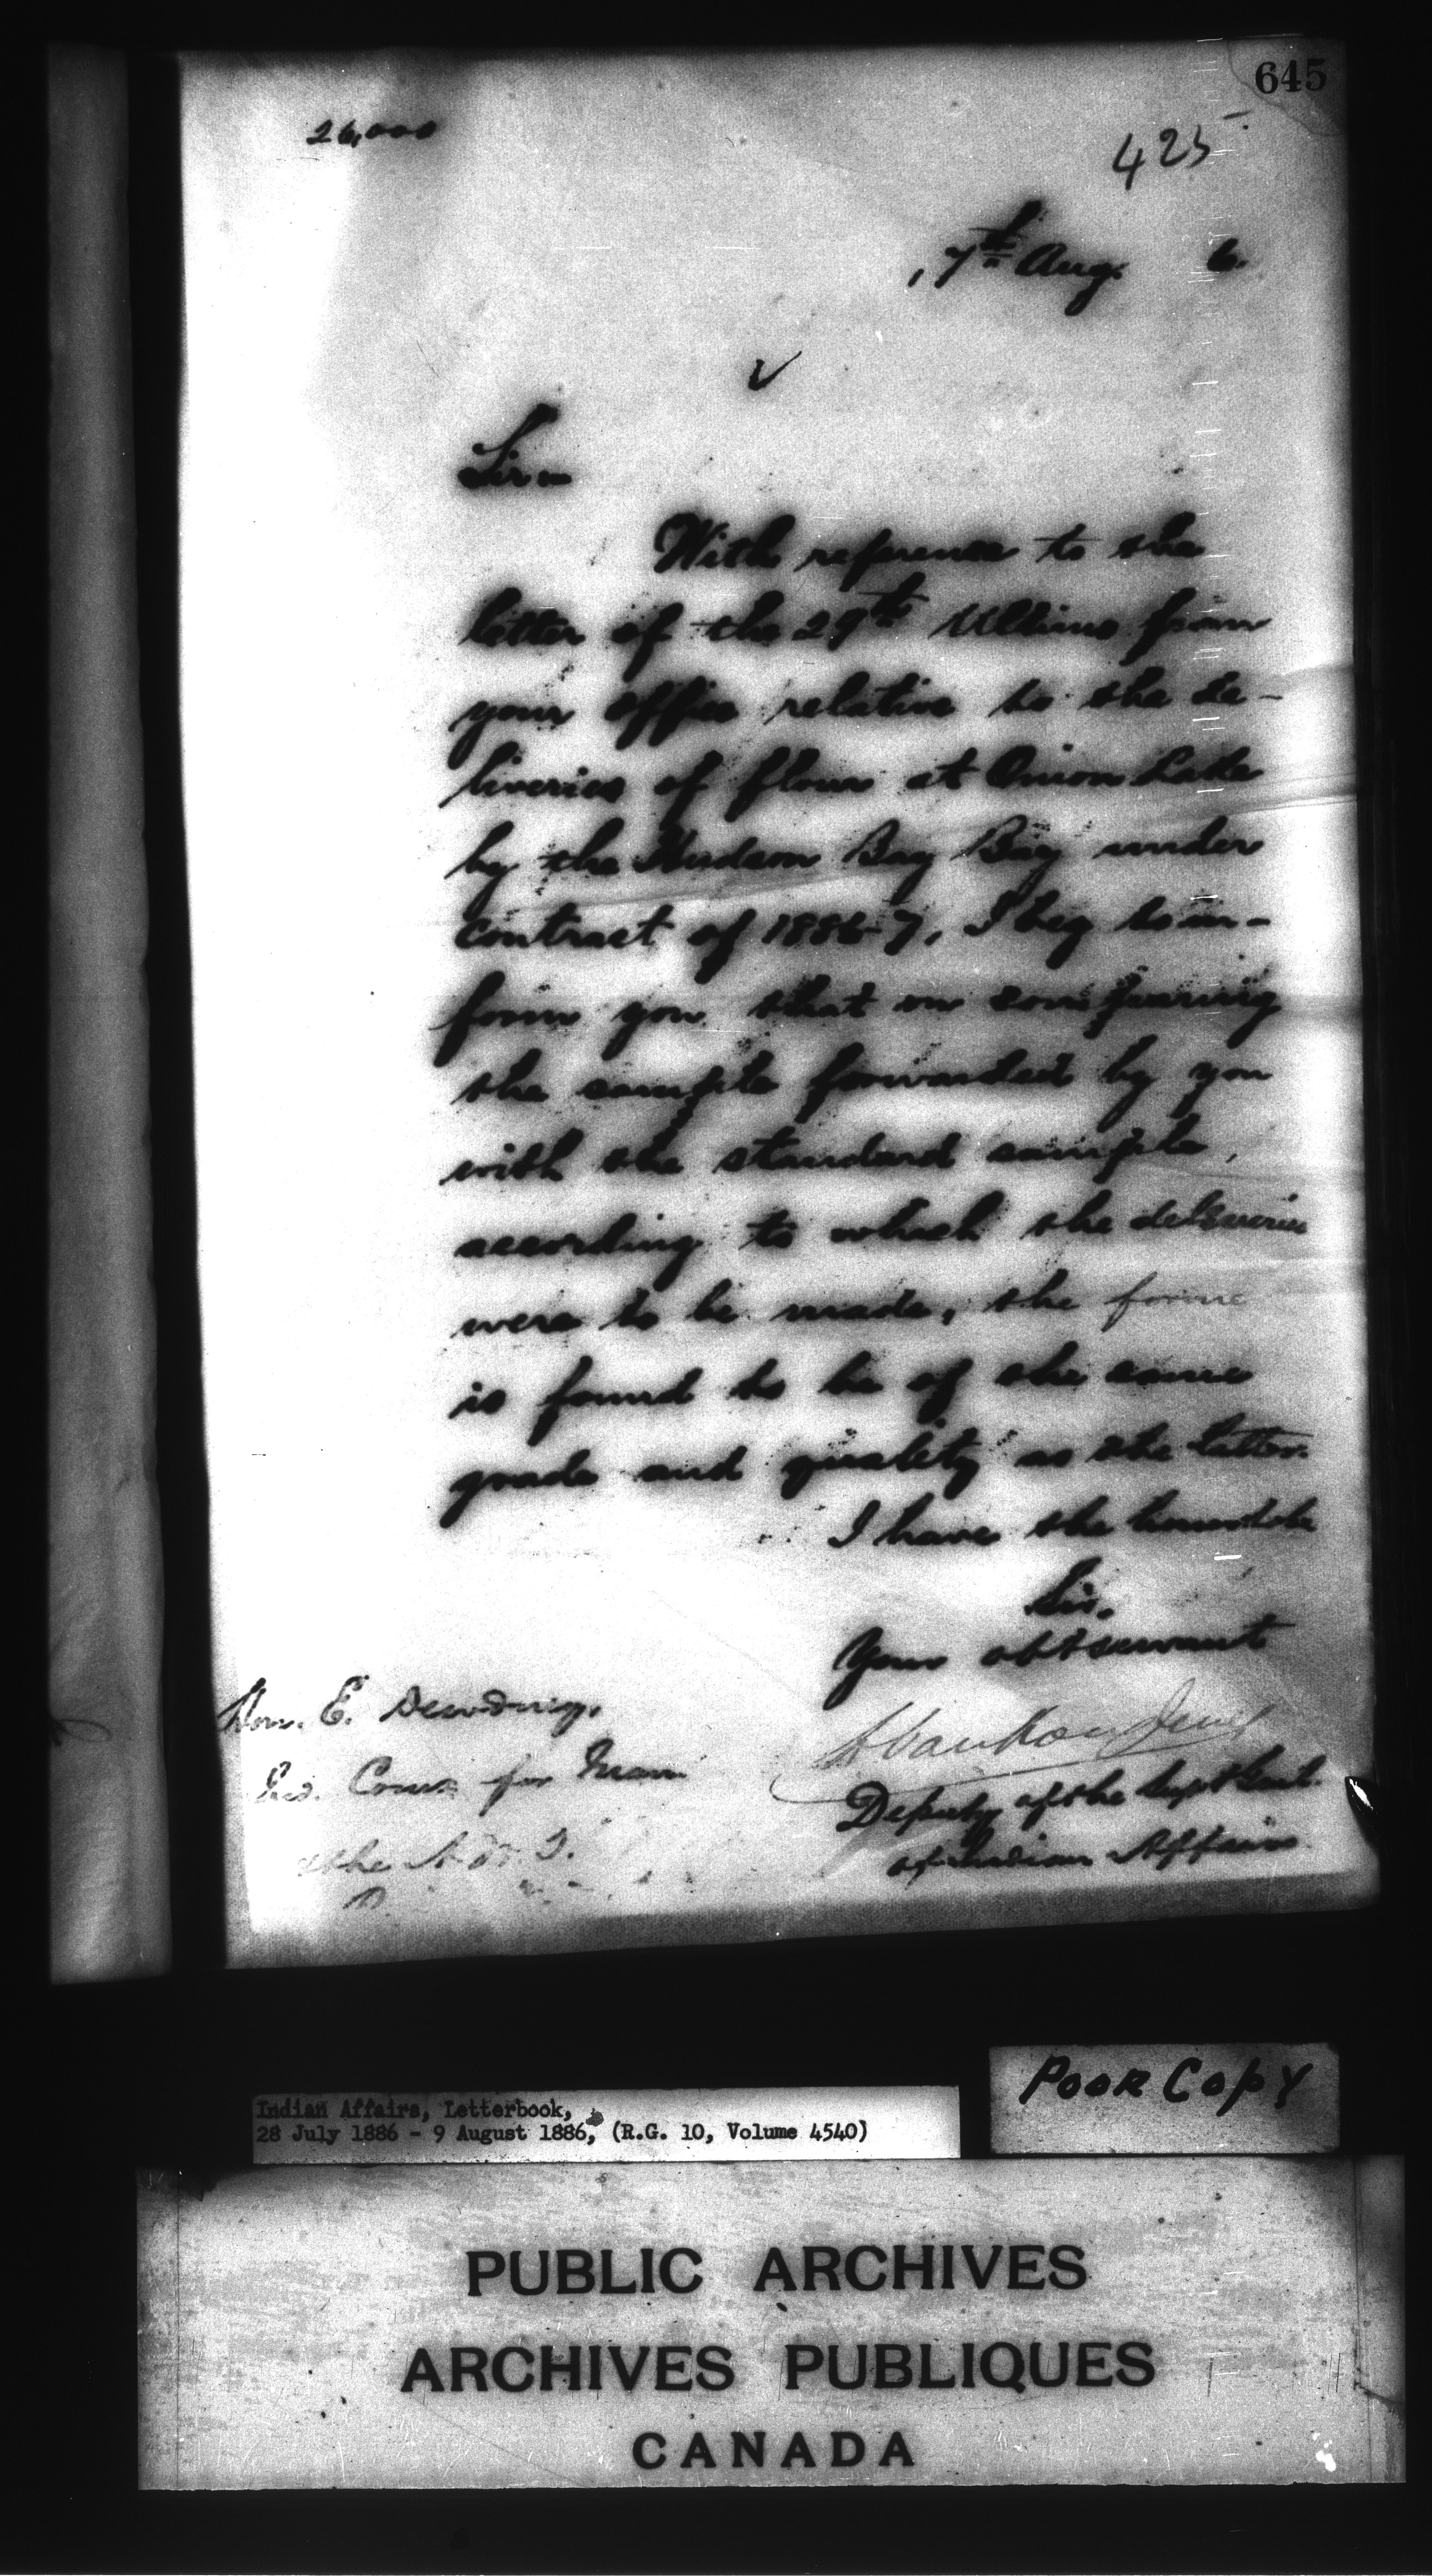 645
26,000
425
, 7th Aug. 6.
Sir
With reference to the
letter of the 29th Ultimo from
your office relative to the de-
liveries of flour at Onion Lake
by the Hudson Bay Bay under
contract of 1886-7, I beg to in-
form you that on comparing
the sample forwarded by you
with the standard sample,
according to which the deliveries
were to be made, the forme
is found to be of the same
grade and quality as the latter.
I have the honor to be
Sir,
Your obt servant
L. Vankoughnet
Deputy of the Supt Genl.
of Indian Affairs
Hon. E. Dewdney,
Ind. Comr. for Man.
& the N. W. T.
Poor Copy
Indian Affairs, Letterbook,
28 July 1886 - 9 August 1886, (R.G. 10, Volume 4540)
PUBLIC ARCHIVES
ARCHIVES PUBLIQUES
CANADA